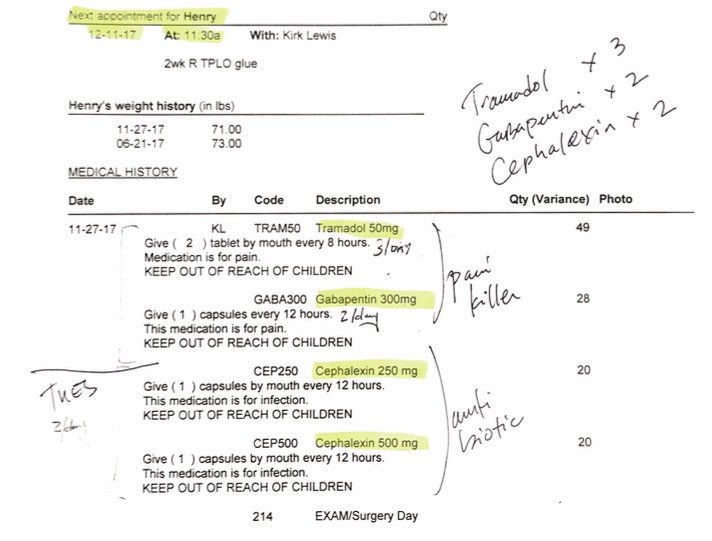 Next appointment for Henry Qty
12-11-17 At: 11:30a With: Kirk Lewis
2wk R TPLO glue
Tramadol x 3
Gabapentin x 2
Cephalexin x 2
Henry's weight history (in lbs)
11-27-17 71.00
06-21-17 73.00
MEDICAL HISTORY
Date By Code Description Qty (Variance) Photo
11-27-17 KL TRAM50 Tramadol 50mg 49
Give ( 2 ) tablet by mouth every 8 hours. 3/day
Medication is for pain.
KEEP OUT OF REACH OF CHILDREN
pain
killer
GABA300 Gabapentin 300mg 28
Give ( 1 ) capsules every 12 hours. 2/day
This medication is for pain.
KEEP OUT OF REACH OF CHILDREN
CEP250 Cephalexin 250 mg 20
Give ( 1 ) capsules by mouth every 12 hours.
This medication is for infection.
KEEP OUT OF REACH OF CHILDREN
TUES
2/day
anti
biotic
CEP500 Cephalexin 500 mg 20
Give ( 1 ) capsules by mouth every 12 hours.
This medication is for infection.
KEEP OUT OF REACH OF CHILDREN
214 EXAM/Surgery Day